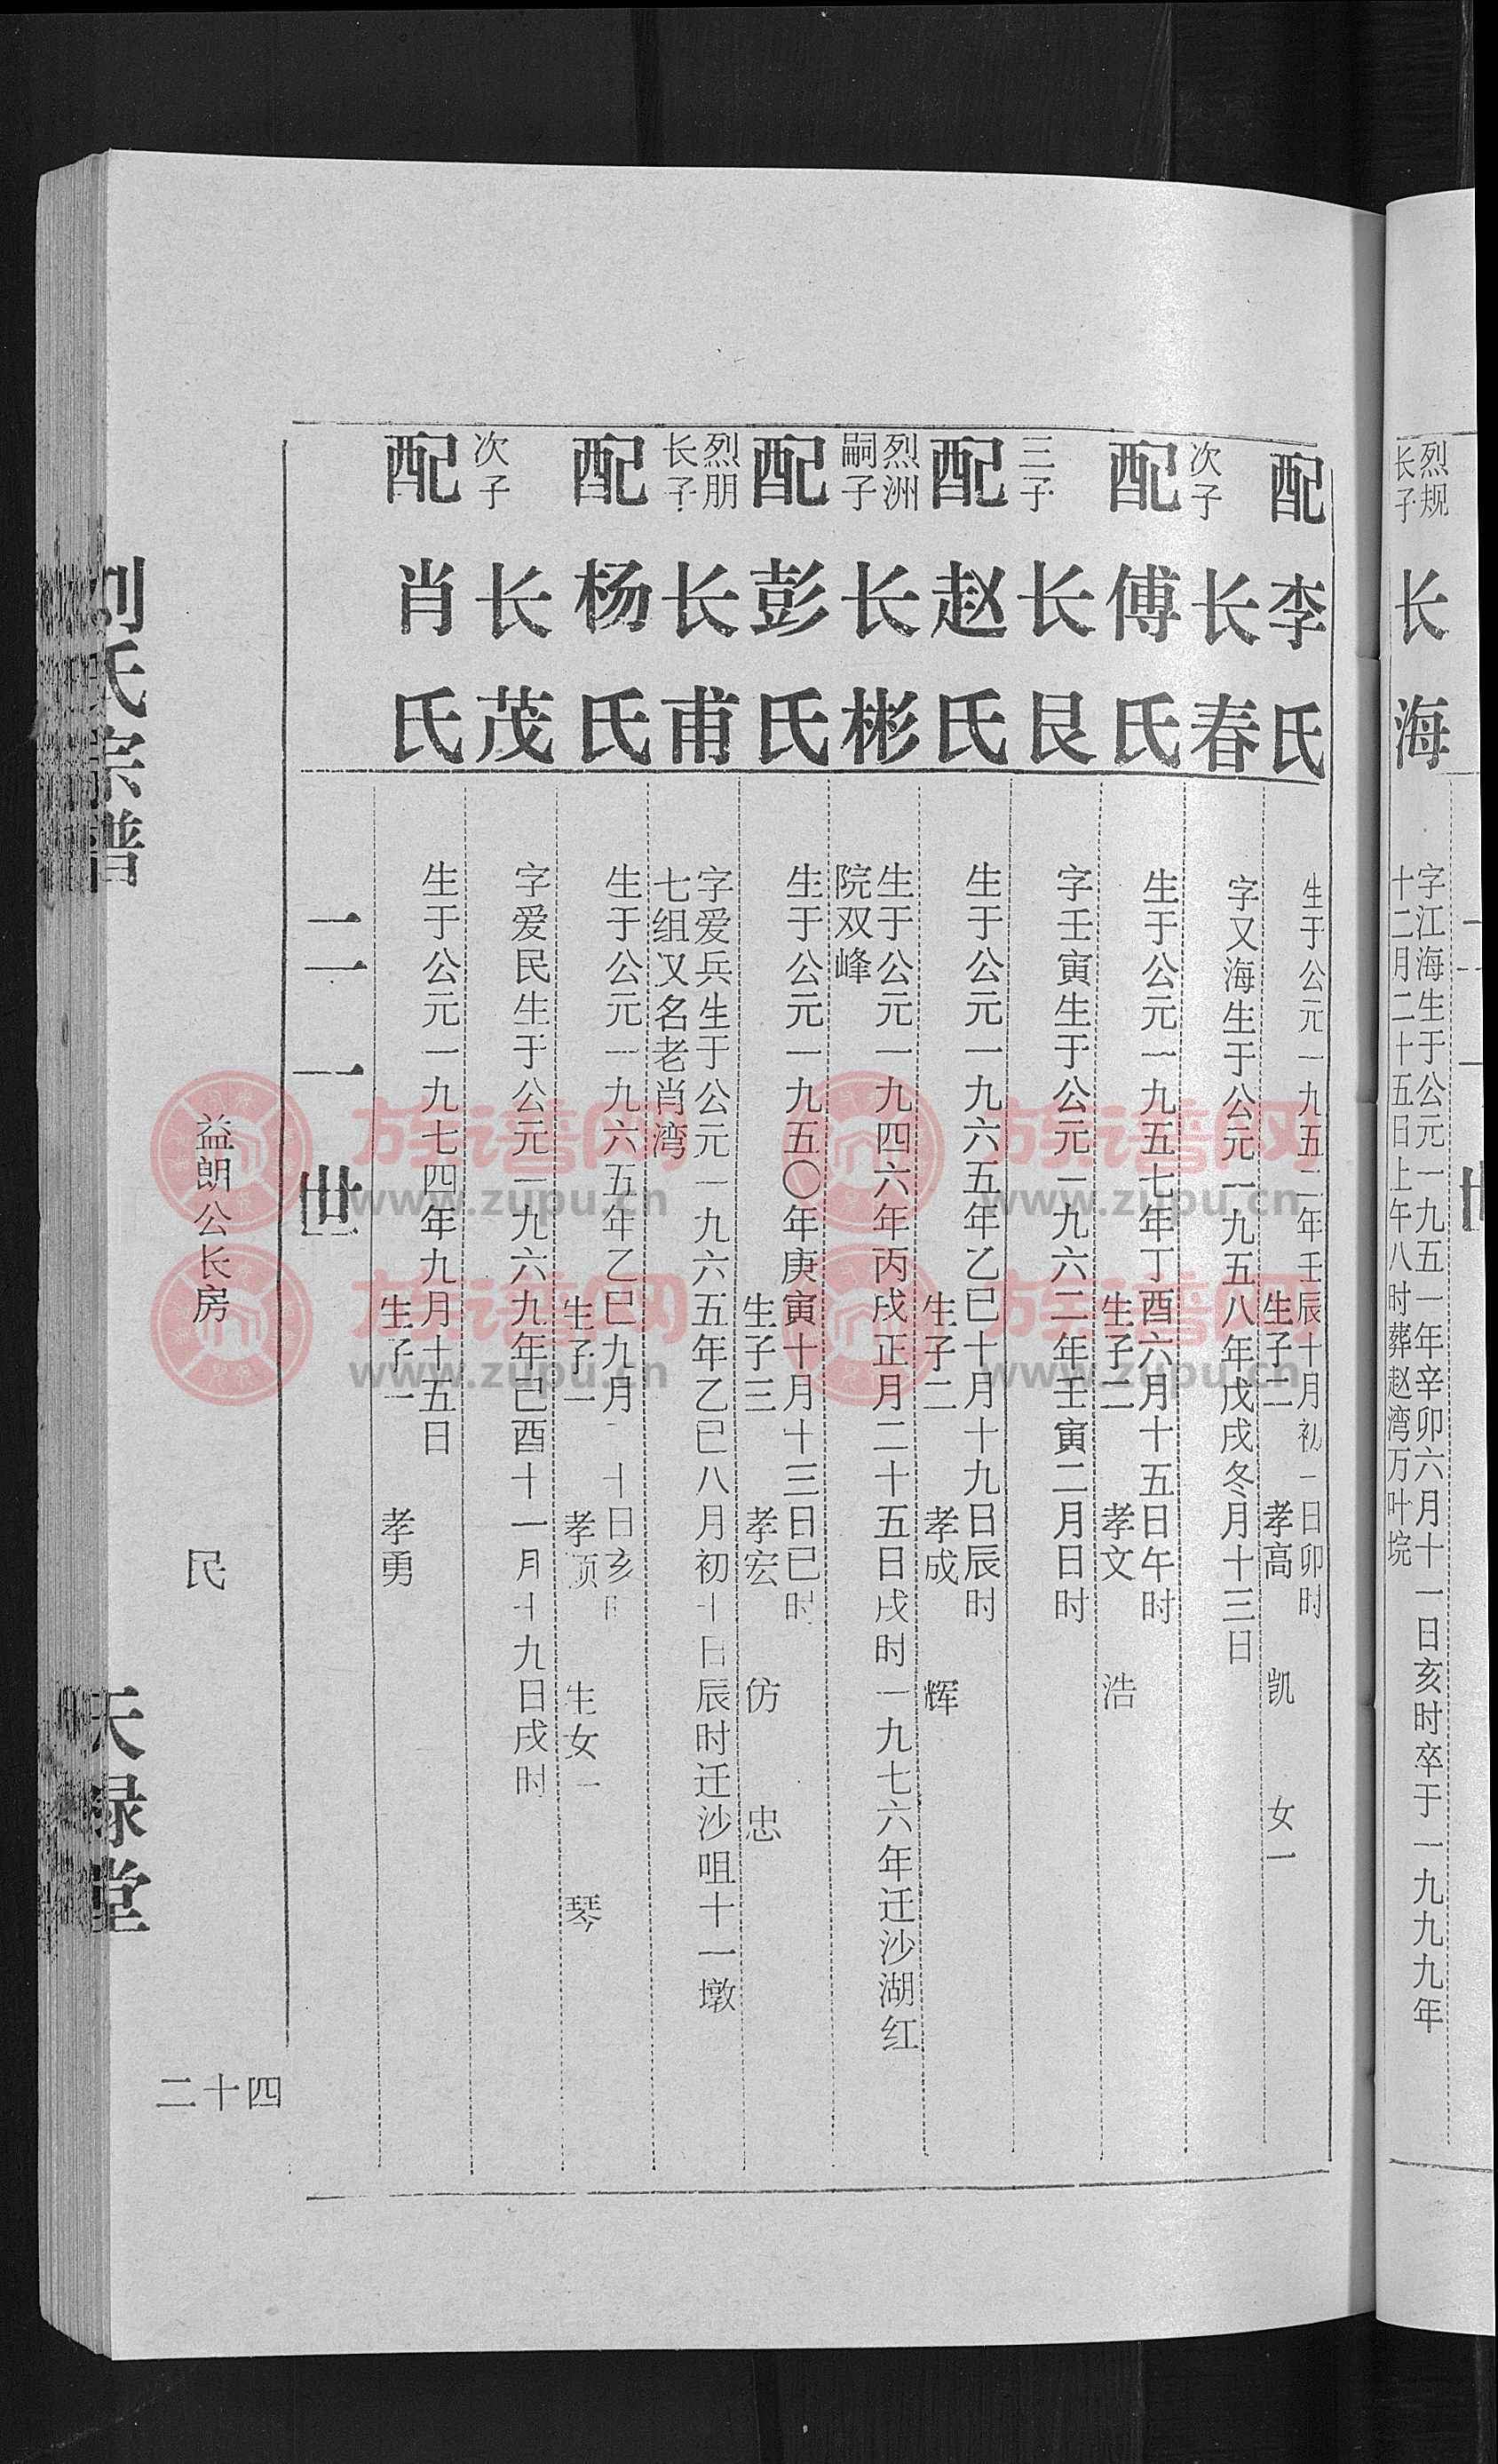 烈规
长子
长海
字江海生于公元一九五一年辛卯六月十一日亥时卒于一九九九年
十二月二十五日上午八时葬赵湾万叶垸
配李氏
生于公元一九五二年壬辰十月初一日卯时
生子二 孝高 凯 女一
次子
长春
字又海生于公元一九五八年戊戌冬月十三日
配傅氏
生于公元一九五七年丁酉六月十五日午时
生子二 孝文 浩
三子
长艮
字壬寅生于公元一九六二年壬寅二月日时
配赵氏
生于公元一九六五年乙巳十月十九日辰时
生子二 孝成 辉
烈洲
嗣子
长彬
生于公元一九四六年丙戌正月二十五日戌时一九七六年迁沙湖红
院双峰
配彭氏
生于公元一九五〇年庚寅十月十三日巳时
生子三 孝宏 仿 忠
烈朋
长子
长甫
字爱兵生于公元一九六五年乙巳八月初十日辰时迁沙咀十一墩
七组又名老肖湾
配杨氏
生于公元一九六五年乙巳九月二十日亥时
生子一 孝顶 生女一 琴
次子
长茂
字爱民生于公元一九六九年己酉十一月十九日戌时
配肖氏
生于公元一九七四年九月十五日
生子一 孝勇
二一世
益朗公长房
民
二十四
刘氏宗谱
天禄堂
族谱网
www.zupu.cn
族谱网
www.zupu.cn
族谱网
www.zupu.cn
族谱网
www.zupu.cn